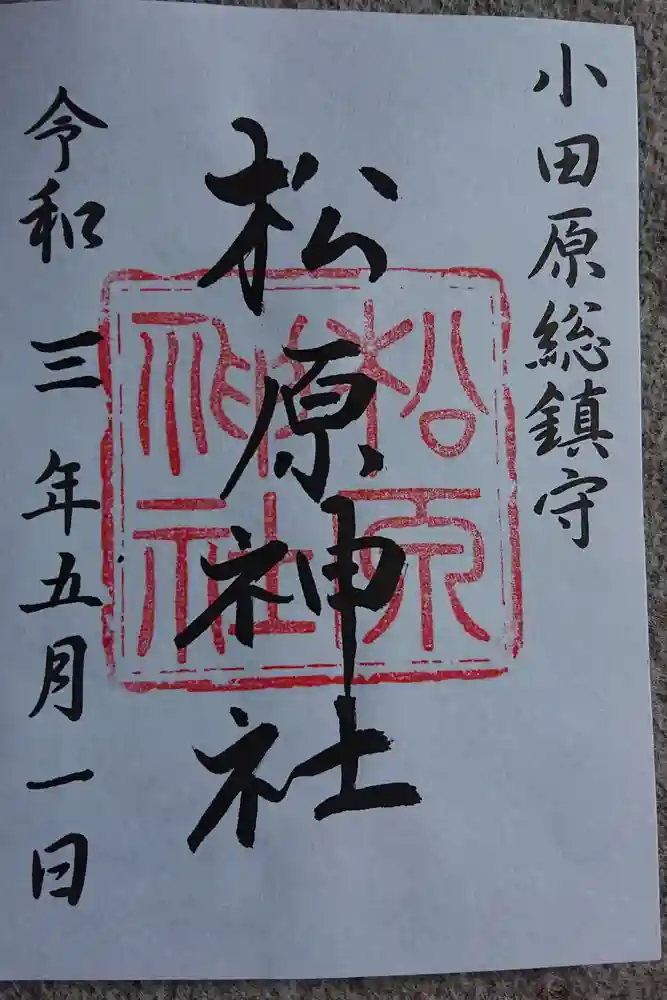 小田原総鎮守
松原神社
松原
神社
令和三年五月一日